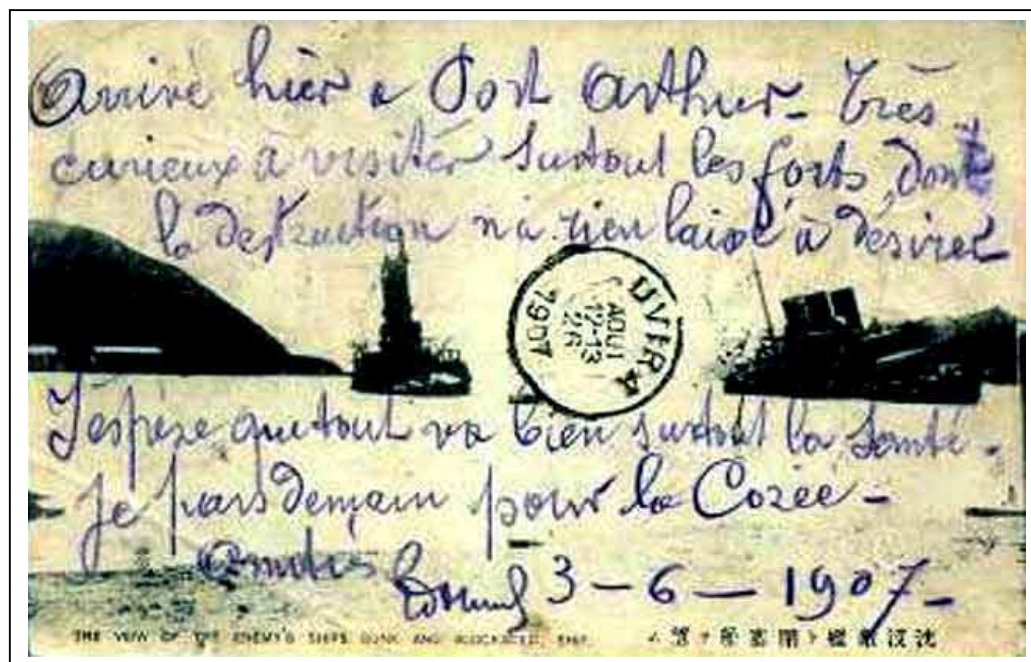 Arrivé hier a Port Arthur - très
curieux à visiter surtout les forts, dont
la destruction n'a rien laissé à désirer
UVIRA
AOUT
12-13
26
1907
J'espère que tout va bien surtout la santé.
je pars demain pour la Corée -
3 - 6 - 1907 -
THE VIEW OF THE ENEMY'S SHIPS SUNK AND BLOCKADED, SHIP.